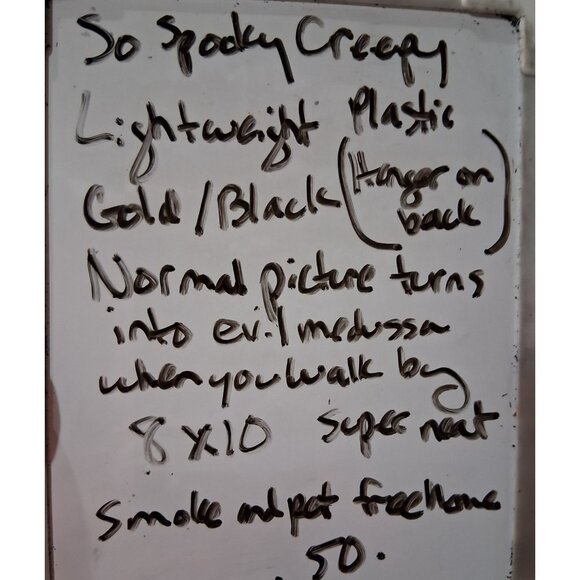 So Spooky Creepy
Lightweight Plastic
Gold/Black (Hanger on back)
Normal picture turns
into evil medussa
when you walk by
8x10 super neat
Smoke and pet free Home
.50.